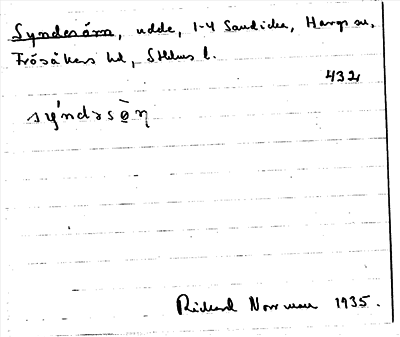 Synderörn, udde, 1-4 Sandika, Hargs sn,
Frösåkers hd, Sthlms l.
432
sýndəsø̀η
Rickard Norrman 1935.